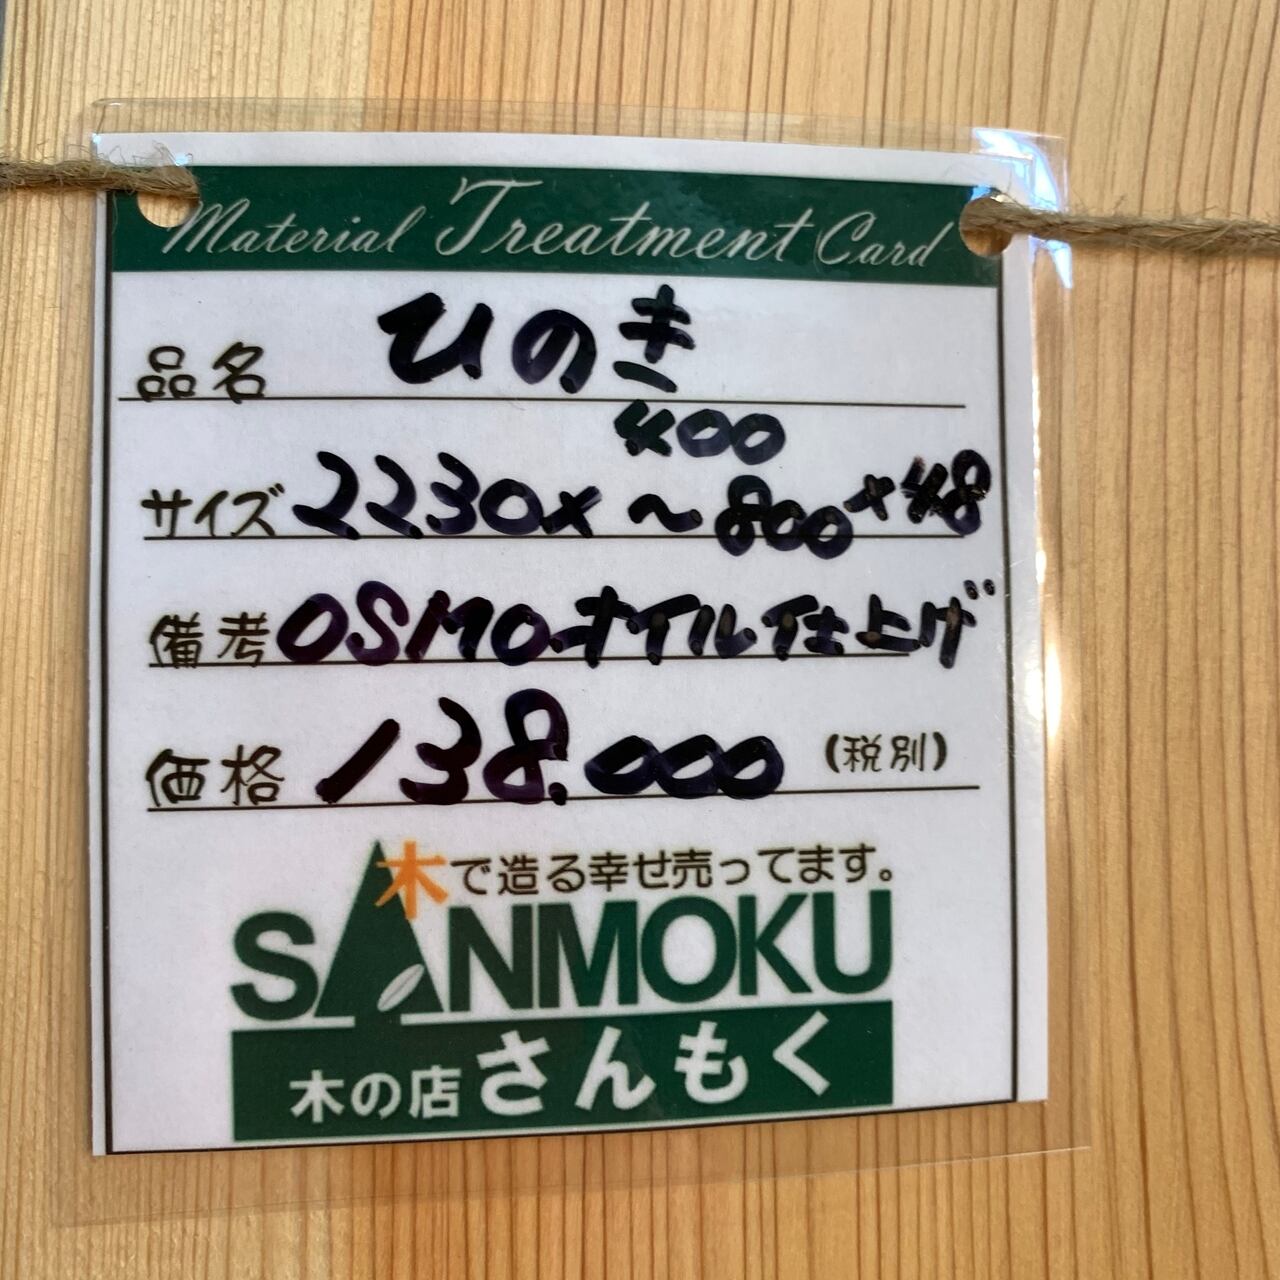 Material Treatment Card
品名 ひのき
400
サイズ 2230×～800×48
備考 OSMO.オイル仕上げ
価格 138.000 (税別)
木で造る幸せ売ってます。
SANMOKU
木の店 さんもく